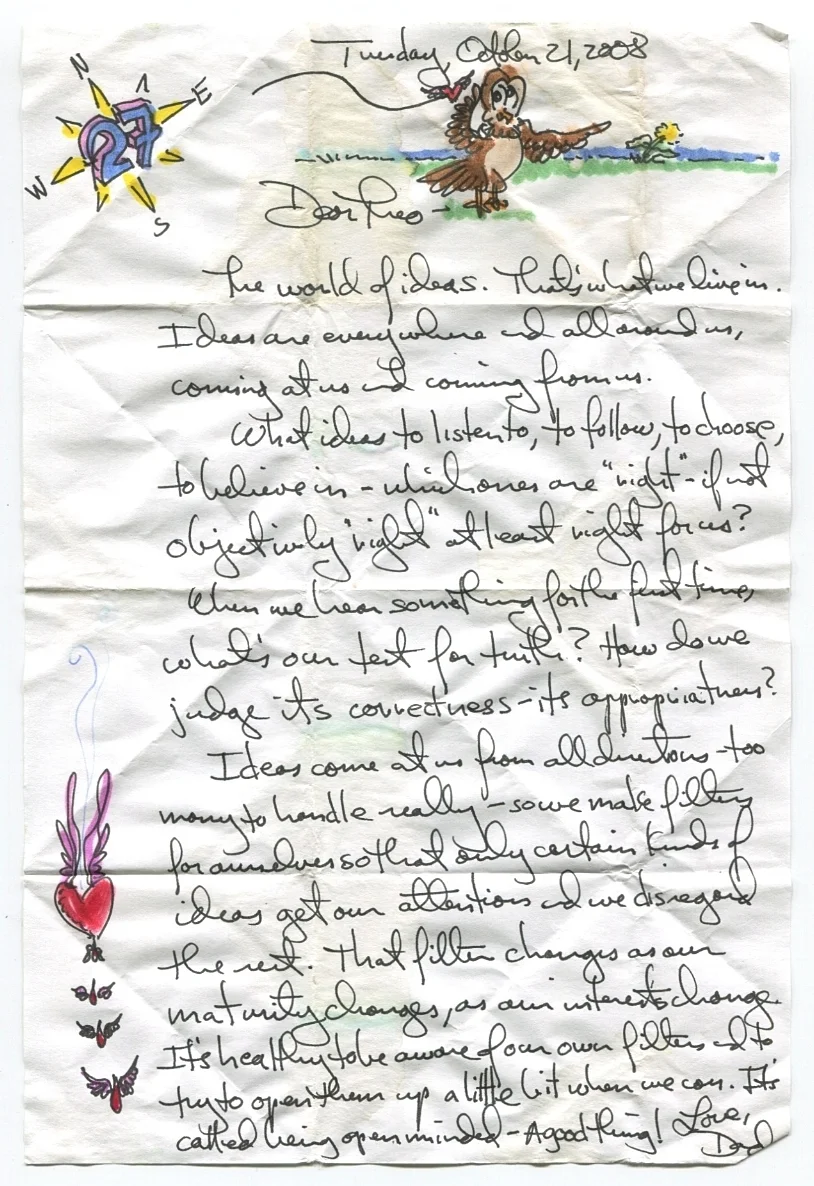 Tuesday, October 21, 2008
N
E
27
W
S
Dear Theo -
The world of ideas. That's what we live in.
Ideas are everywhere and all around us,
coming at us and coming from us.
What ideas to listen to, to follow, to choose,
to believe in - which ones are "right" - if not
objectively "right" at least right for us?
When we hear something for the first time,
what's our test for truth? How do we
judge its correctness - its appropriateness?
Ideas come at us from all directions - too
many to handle really - so we make filters
for ourselves so that only certain kinds of
ideas get our attentions and we disregard
the rest. That filter changes as our
maturity changes, as our interests change.
It's healthy to be aware of our own filters and to
try to open them up a little bit when we can. It's
called being open minded - A good thing! Love,
Dad